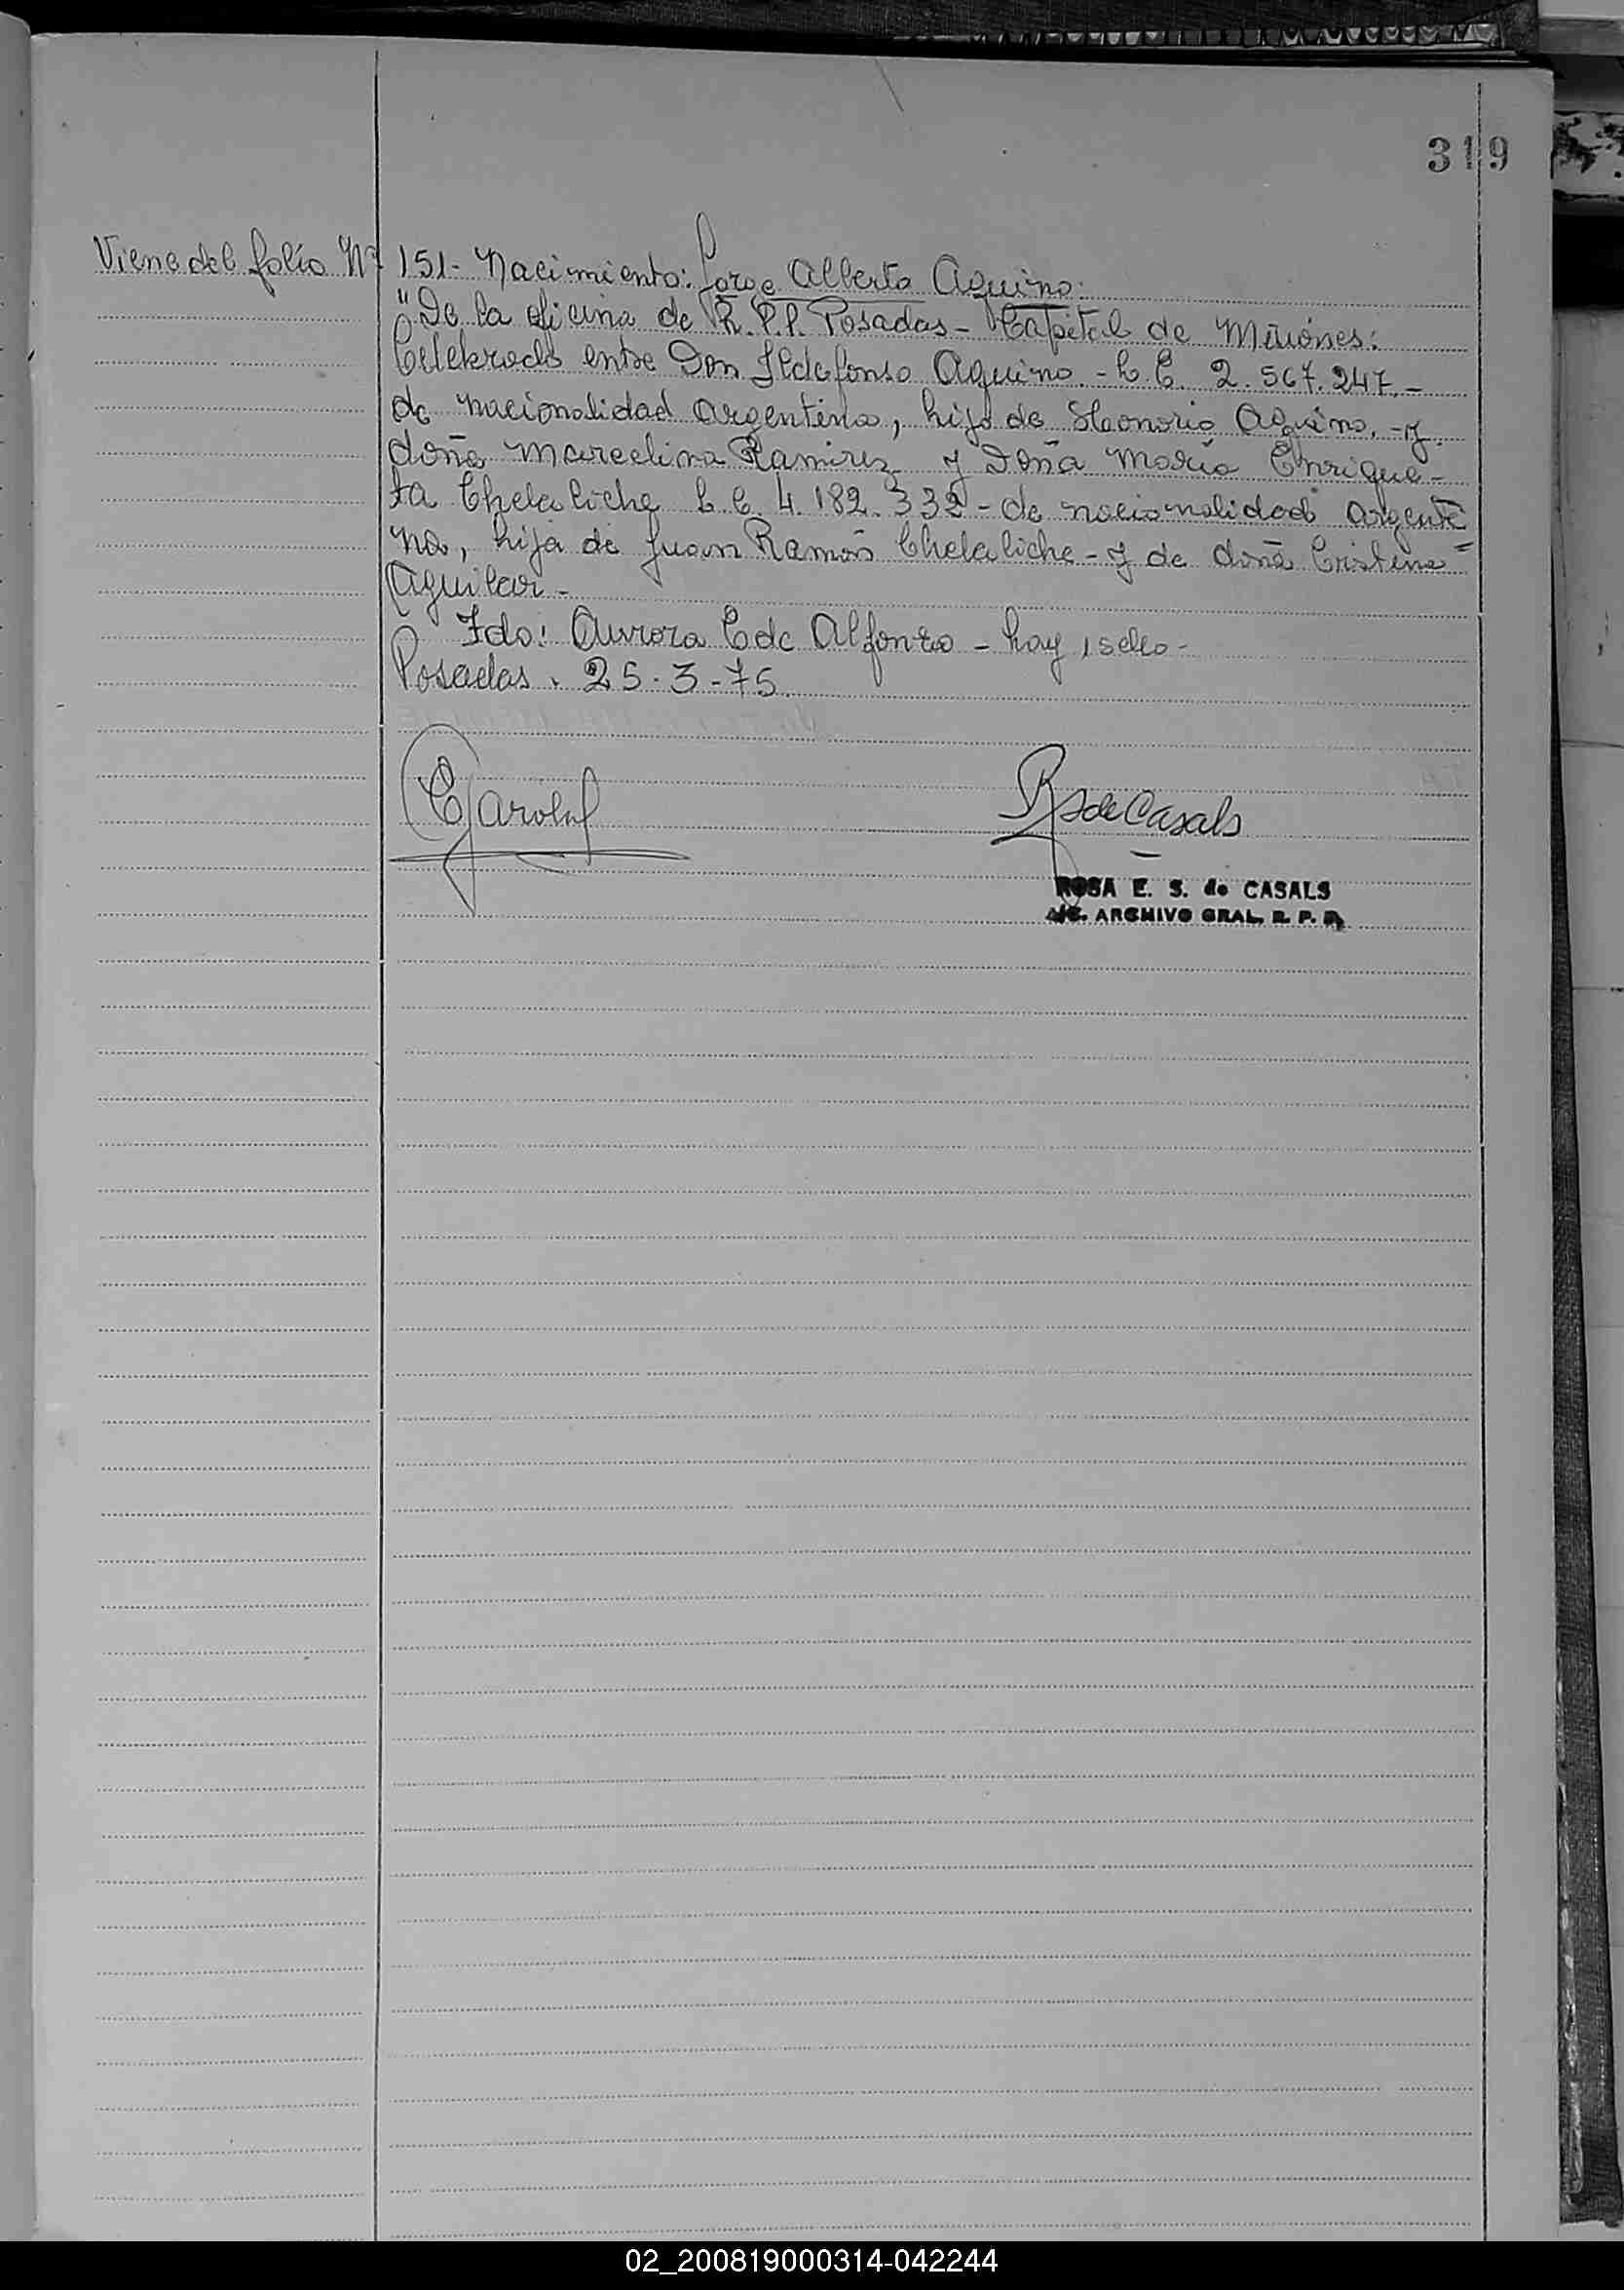 319
Viene del folio Nº 151- Nacimiento: Jorge Alberto Aquino.
"De la oficina de R.P.P. Posadas - Capital de Misiónes:
Celebrado entre Don Ildefonso Aquino - L.E. 2.567.247.-
de nacionalidad argentina, hijo de Honorio Aquino, - y
doña Marcelina Ramirez y Doña María Enrique-
ta Chelaliche L.C. 4.182.332 - de nacionalidad argenti
na, hija de Juan Ramón Chelaliche - y de doña Cristina =
Aguilar -
Fdo: Aurora C de Alfonzo - hay 1 sello -
Posadas. 25-3-75
RsdeCasals
ROSA E. S. de CASALS
A/C. ARCHIVO GRAL. R. P. P.
02_200819000314-042244